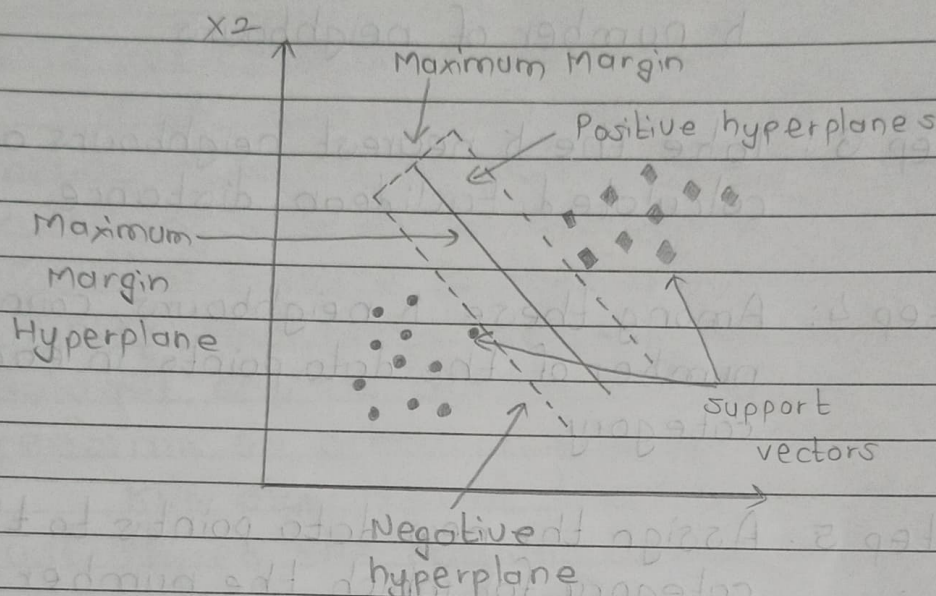 X2
Maximum Margin
Positive hyperplanes
Maximum
Margin
Hyperplane
support
vectors
Negative
hyperplane